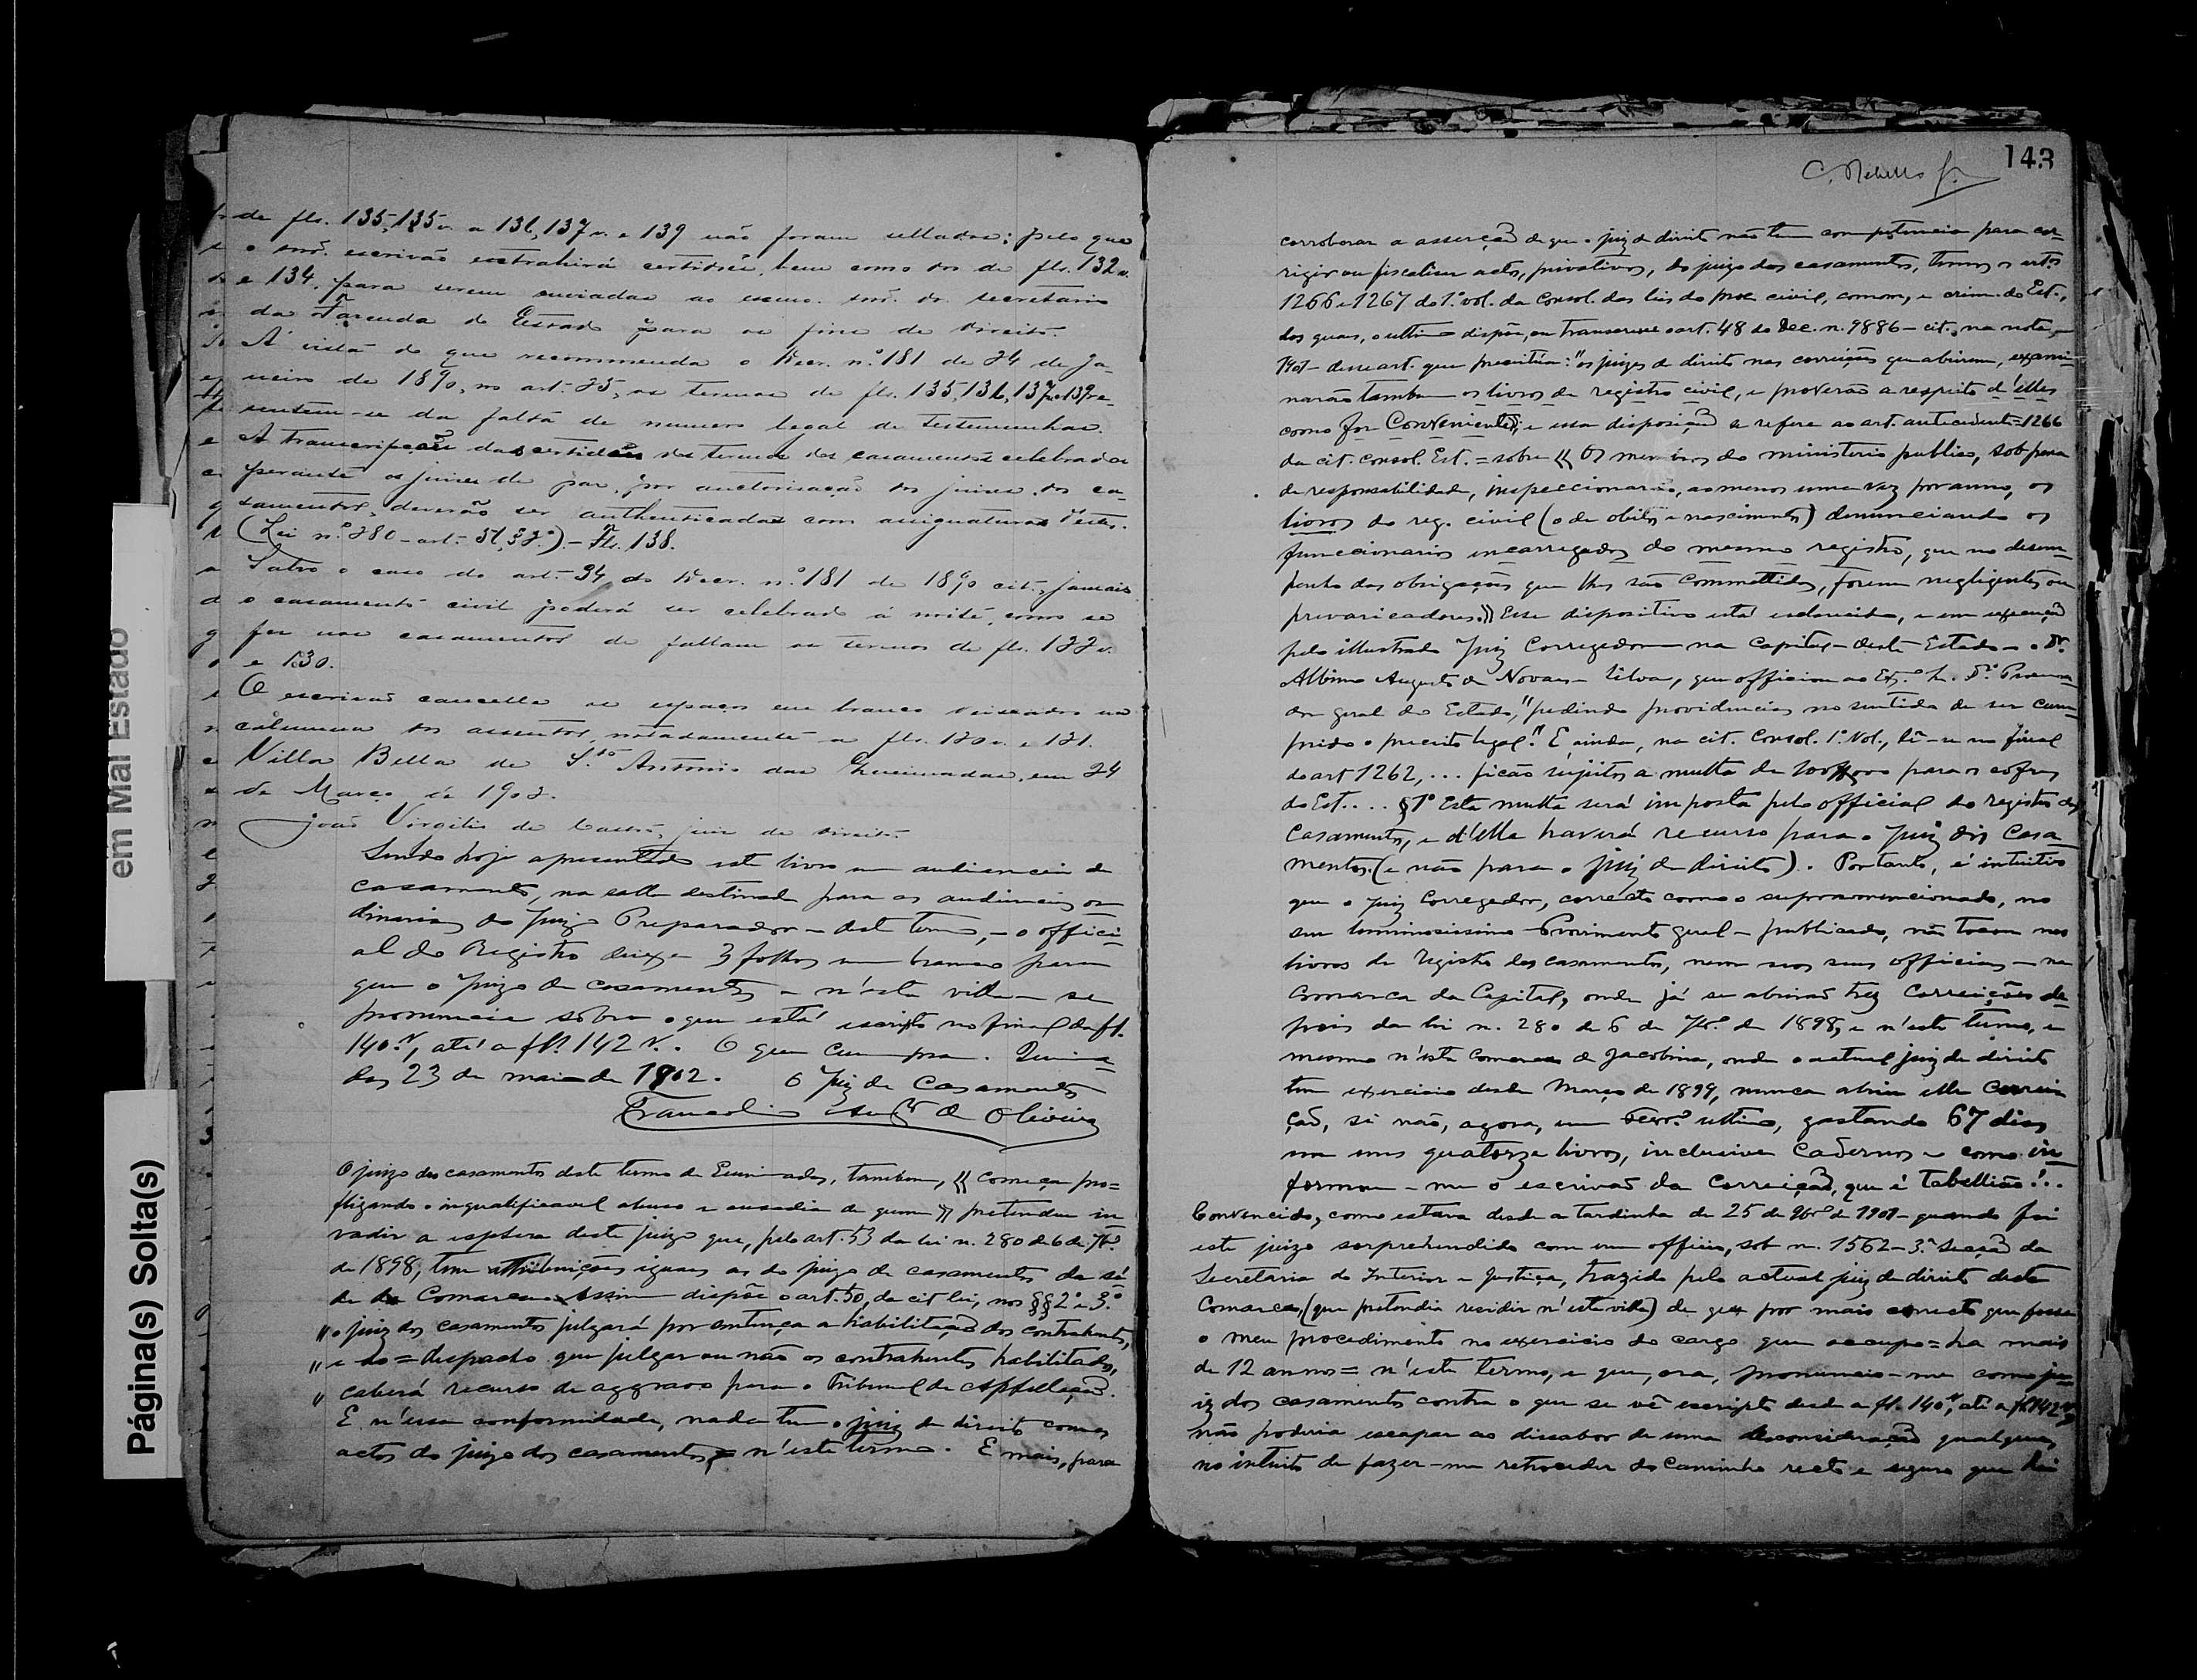 de fls. 135, 135v. a 136, 137v. e 139 não foram sellados; pelo que
o snr. escrivão extrahirá certidões, bem como dos de fls. 132v.
e 134, para serem enviadas ao exmo. snr. dr. secretario
da Fazenda do Estado para os fins de direito.
Á vista do que recommenda o Decr. n.º 181 de 24 de Ja-
neiro de 1890, no art. 25, os termos de fls. 135, 136, 137v e 139 re-
sentem-se da falta de numero legal de testemunhas.
A transcripção das certidões dos termos dos casamentos celebrados
perante os juizes de paz, por auctorisação dos juizes dos ca-
samentos, deverão ser authenticadas com assignaturas d'estes.
(Lei n.º 280 - art. 51, § 2.º) - Fls. 138.
Salvo o caso do art. 34 do Decr. n.º 181 de 1890 cit., jamais
o casamento civil poderá ser celebrado á noite, como se
fez nos casamentos de que fallam os termos de fls. 122v.
e 130.
O escrivão cancelle os espaços em branco deixados na
columna dos assentos, notadamente a fls. 120v. e 121.
Villa Bella de S.to Antonio das Queimadas, em 24
de Março de 1902.
João Virgilio de Castro, juiz de direito
Sendo hoje apresentado este livro em audiencia de
casamento, na salla destinada para as audiencias or-
dinarias do Juizo Preparador - deste termo, - o offici-
al do Registro deixe 3 folhas em branco para
que o Juizo de casamentos - n'esta villa - se
pronuncie sobre o que está escripto no final da fl.
140.v, até a fl. 142 v. O que cumpra. Queima-
das 23 de maio de 1902. O Juiz de Casamentos
de Oliveira
O juizo dos casamentos deste termo de Queimadas, tambem, « começa pro-
fligando o inqualificavel abuso e ousadia de quem » pretendeu in-
vadir a esphera deste juizo que, pelo art. 53 da lei n. 280 de 6 de 7br.º
de 1898, tem attribuições iguaes as do juizo de casamentos da sé-
de da Comarca. Assim dispõe o art. 50, da cit lei, nos §§ 2º e 3.º
"o juiz dos casamentos julgará por sentença a habilitação dos contrahentes,
" e do = despacho que julgar ou não os contrahentes habilitados,
" caberá recurso de aggravo para o Tribunal de Appellação.
E n'essa conformidade, nada tem o juiz de direito com os
actos do juizo dos casamentos n'este termo. E mais, para
143
corroborar a asserção de que o juiz de direito não tem competencia para cor-
rigir ou fiscalisar actos, privativos, do juizo dos casamentos, temos os art.os
1266 e 1267 do 1.º vol. da Consol. das leis do proc. civil, comm., e crim. do Est.,
dos quaes, o ultimo dispõe, ou transcreve o art. 48 do Dec. n. 9886 - cit., na nota,
desse art. que preceitúa: "os juizes de direito nas correições que abrirem, exami-
narão tambem os livros de registro civil, e proverão a respeito d'elles
como for conveniente"; e essa disposição se refere ao art. antecedente = 1266
da cit. Consol. Est. = sobre « Os membros do ministerio publico, sob pena
de responsabilidade, inspeccionarão, ao menos uma vez por anno, os
livros do reg. civil (o de obitos e nascimentos) denunciando os
funccionarios incarregados do mesmo registro, que no desem-
penho das obrigações que lhes são commettidas, forem negligentes ou
prevaricadores.» Esse dispositivo está esclarecido, e em execução
pelo illustrado Juiz Corregedor na Capital deste Estado - o Dr.
Albino Augusto de Novaes Silva, que officiou ao Ex.º Sr. Dr. Procura-
dor geral do Estado, "pedindo providencias no sentido de ser cum-
prido o preceito legal." E ainda, na cit. Consol. 1.º Vol., lê-se no final
do art 1262, ... ficão sujeitos a multa de para os cofres
do Est. ... § 1º Esta multa será imposta pelo official do registro dos
Casamentos, e d'ella haverá recurso para o Juiz dos Casa-
mentos. (e não para o juiz de direito). Portanto, é intuitivo
que o Juiz Corregedor, correcto como o supramencionado, no
seu luminosissimo Provimento geral - publicado, não tocou nos
livros de registro dos casamentos, nem nos seus officiaes - na
Comarca da Capital, onde já se abrirão trez Correições de-
pois da lei n. 280 de 6 de 7br.º de 1898, e n'este termo, e
mesmo n'esta Comarca de Jacobina, onde o actual juiz de direito
tem exercicio desde Março de 1899, nunca abriu elle correi-
ção, si não, agora, em Fevr.º ultimo, gastando 67 dias
em uns quatorze livros, inclusive Cadernos - como in-
formou-me o escrivão da Correição, que é Tabellião!..
Convencido, como estava desde a tardinha de 25 de 9br.º de 1901 - quando foi
este juizo sorprehendido com um officio, sob n. 1562 - 3.ª Secção da
Secretaria do Interior e Justiça, trazido pelo actual juiz de direito desta
Comarca, (que pretendia residir n'esta villa) de que por mais correcto que fosse
o meu procedimento no exercicio do cargo que occupo = ha mais
de 12 annos = n'este termo, e que, ora, pronuncio-me como ju-
iz dos casamentos contra o que se vê escripto desde a fl. 140v, até a fl. 142v,
não poderia escapar ao dissabor de uma desconsideração qualquer,
no intuito de fazer-me retroceder do caminho recto e seguro que
em Mal Estado
Página(s) Solta(s)